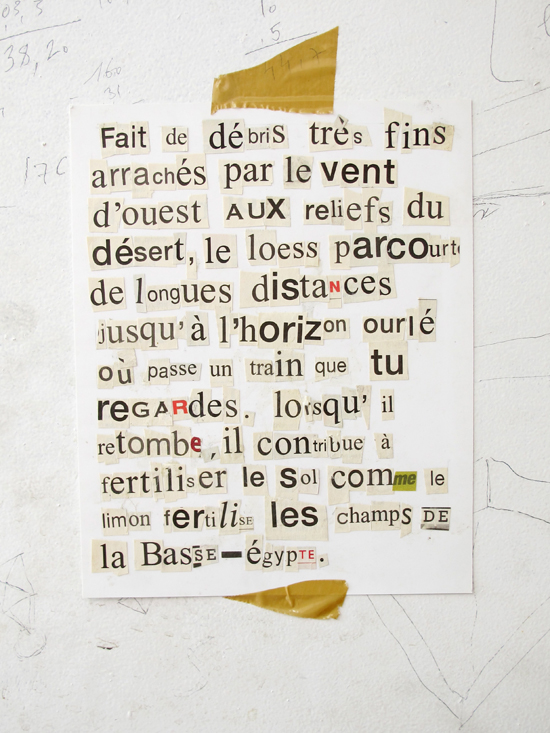 03,3
38,20
10
.5
160
31
17C
Fait de débris très fins
arrachés par le vent
d'ouest AUX reliefs du
désert, le loess parcourt
de longues distaNces
jusqu'à l'horizon ourlé
où passe un train que tu
reGARdes. lorsqu' il
retombe, il contribue à
fertiliser le Sol comme le
limon fertiliSE les champs DE
la BasSE-égypTE.